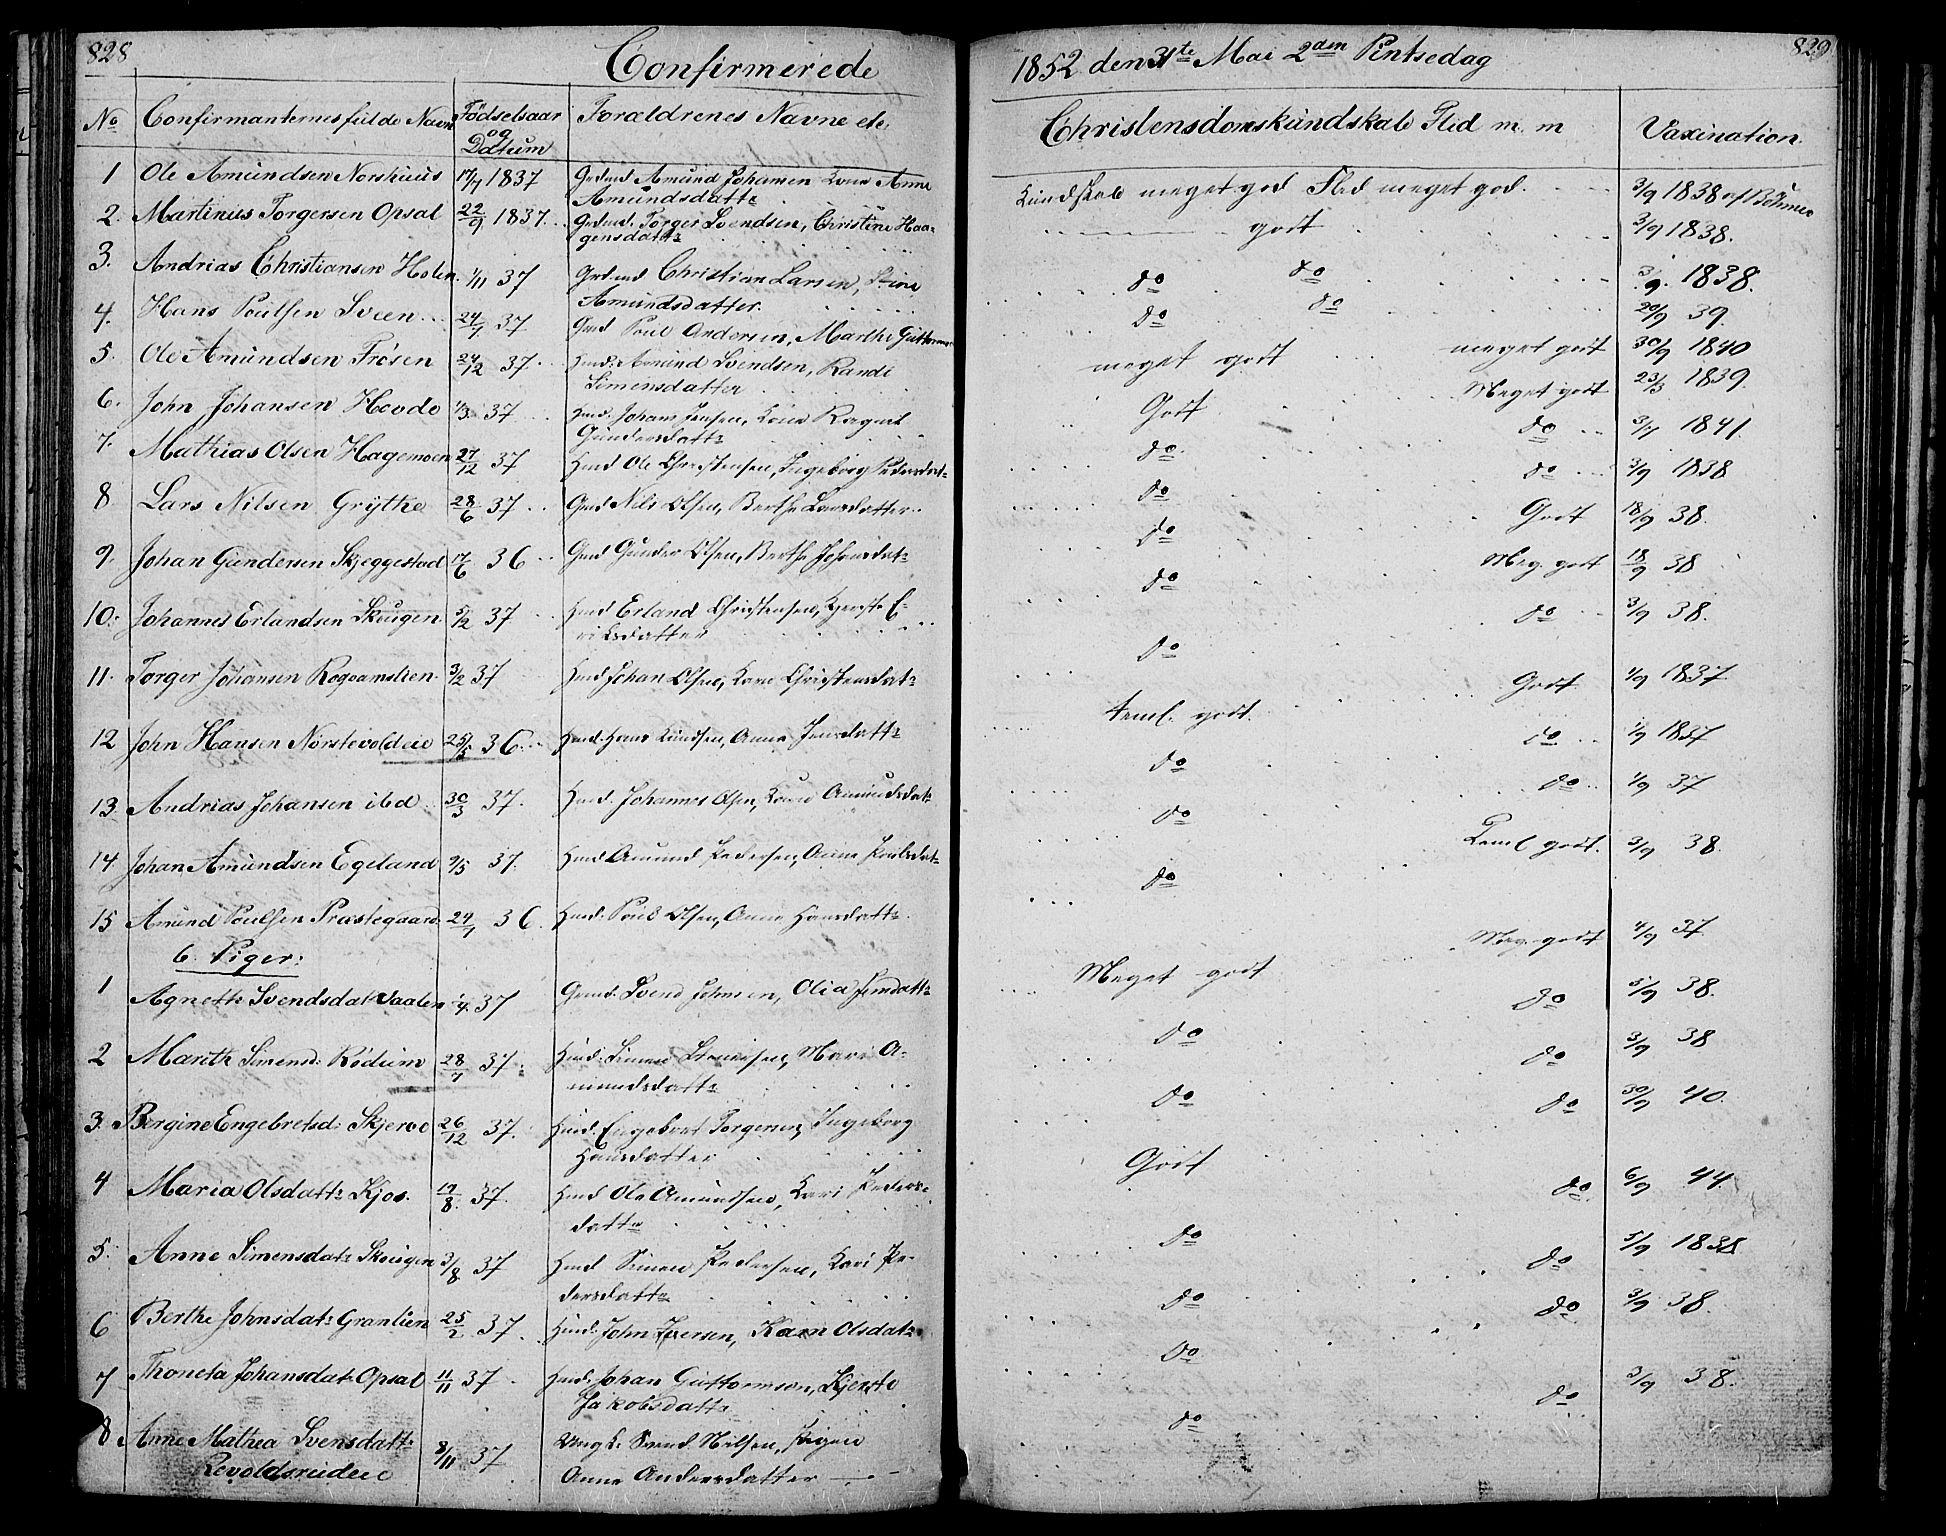 828
Confirmerede
No
Confirmanternes fulde Navn
Födselsaar og Datum
Forældrenes Navne etc.
1 Ole Amundsen Norshuus 17/7 1837 Grdmd Amund Johansen Kone Anne
Amundsdattr
2. Martinus Torgersen Opsal 22/9 1837. Grdmd. Torger Svendsen, Christine Haa-
gensdattr
3. Andrias Christiansen Holen 1/11 37 Grdmd Christian Larsen, Stine
Amundsdatter.
4. Hans Poulsen Sveen 24/7 37 Gmd Poul Andersen, Marthe Guttorms
5. Ole Amundsen Frösen 24/12 37 Hmd. Amund Svendsen, Randi
Simensdatter
6. John Johansen Hovde 1/3 37 Hmd. Johans Jensen, Kone Ragnil
Gundersdattr
7. Mathias Olsen Hagemoen 27/12 37 Hmd Ole Christensen, Ingeborg Pedersdat-
8 Lars Nilsen Grÿthe 28/6 37 Gmd Nils Olsen, Berthe Larsdatter
9. Johan Gundersen Skjeggestad 17/6 36 Gmd Gunder Olsen, Berthe Johnsdat-
10. Johannes Erlandsen Skougen 5/12 37 Hmd Erland Christensen, Kjersti E-
riksdatter
11. Torger Johansen 3/2 37 Hmd Johan Olsen, Kari Christensdat-
12 John Hansen Norstevoldeie 25/5 36 Hmd. Hans Knudsen, Anne Jensdattr
13. Andrias Johansen ibd 30/3 37. Hmd. Johannes Olsen, Kari Amundsdat-
14. Johan Amundsen Egeland 9/5 37. Hmd Amund Pedersen, Anne Poulsdat-
15 Amund Poulsen Præstegaard 24/7 36. Hmd. Poul Olsen, Anne Hansdattr
6. Piger:
1 Agnethe Svendsdat Vaalen /4 37 Gmd. Svend Johnsen, Olia Simdattr
2 Marith Simensd: Rödum 28/7 37 Hmd. Simen Simensen, Mari A-
mundsdattr
3. Bergine Engebretsd: Skjerve 26/12 37. Hmd. Engebret Torgersen, Ingeborg
Hansdatter
4 Maria Olsdattr Kjos. 17/8. 37. Hmd Ole Amundsen, Kari Peders-
dattr
5. Anne Simensdatr Skougen 3/8 37 Hmd Simen Pedersen, Kari Pe-
dersdattr
6 Berthe Johnsdatr Granlien 25/2 37. Hmd. John Iversen, Karn Olsdatr
7 Thoneta Johansdat: Opsal 11/11 37. Hmd. Johan Guttormsen, Kjersti
Jakobsdattr
8 Anne Mathea Svensdattr 8/11 37 Ungk. Svend Nilsen, Pigen
Revoldsrudeie Anne Andersdatter
829
1852 den 31te Mai 2den Pintsedag
Christensdomskundskab Flid m. m
Vaxination.
Kundskab meget god Flid meget god. 3/9 1838 af Böhmer
godt 3/9 1838.
do do 3/9. 1838.
do do 20/9 39.
meget godt meget godt 30/9 1840
Godt Meget godt 23/3 1839
do do 3/7 1841.
do do 3/9 1838
do Godt 18/9 38.
do Meg. godt 18/9 38
do do 3/9 38.
teml. godt. Godt 1/9 1837
do do 1/9 1837
do do 1/9 37
do Teml godt. 3/9 38.
Meget godt Meg. godt 4/9 37
do do 5/9 38.
do do 3/9 38
Godt do 30/9 40.
do do 6/9 44.
do do 5/9 1838
do do 3/9 38.
do do 3/9 38.